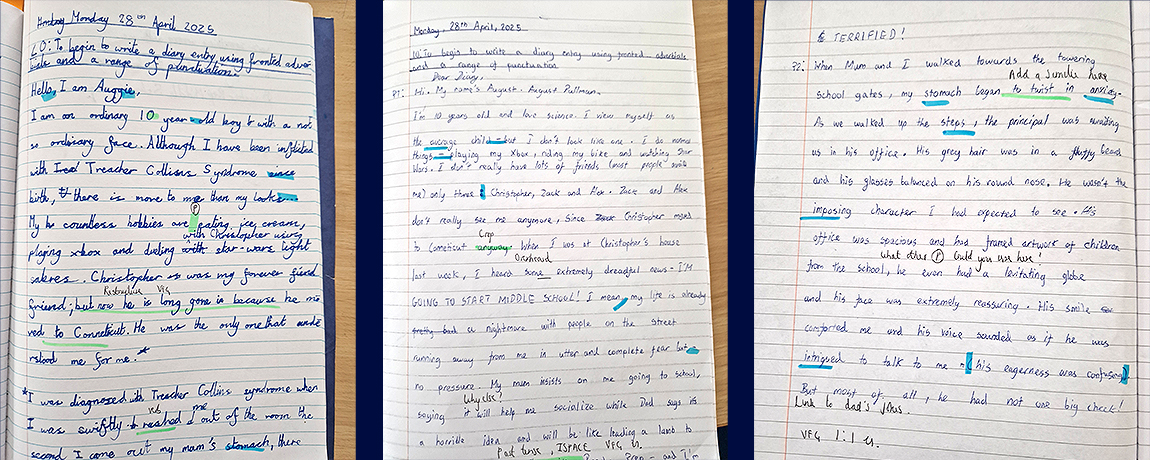 Monday 28th April 2025
LO: To begin to write a diary entry using fronted adver
bials and a range of punctuation.
Hello, I am Auggie,
I am an ordinary 10 year-old boy with a not
so ordinary face. Although I have been inflicted
with Treacher Collins Syndrome since
birth, there is more to me than my looks...
P
My countless hobbies are eating ice cream,
with Christopher using
playing xbox and dueling with star-wars light
sabres. Christopher was my forever fixed
friend; but now he is long gone is because he mo
ved to Conneticut. He was the only one that unde
rstood me for me.*
*I was diagnosed with Treacher Collins syndrome when
me
I was swiftly rushed out of the room the
second I came out my mam's stomach, there
Monday, 28th April, 2025
LO: To begin to write a diary entry using fronted adverbials
and a range of punctuation.
Dear Diary,
P1: Hi. My name's August. August Pullman.
I'm 10 years old and love science. I view myself as
the average child - but I don't look like one. I do normal
things - playing my Xbox, riding my bike and watching Star
Wars. I don't really have lots of friends (most people avoid
me) only three: Christopher, Zack and Alex. Zack and Alex
don't really see me anymore, since Christopher moved
to Conneticut anyway. When I was at Christopher's house
Overheard
last week, I heard some extremely dreadful news - I'M
GOING TO START MIDDLE SCHOOL! I mean, my life is already
pretty bad a nightmare with people on the street
running away from me in utter and complete fear but
no pressure. My mum insists on me going to school,
Why else?
saying it will help me socialize while Dad says it's
a horrible idea and will be like leading a lamb to
Past tense, ISPACE VFG
and I'm
TERRIFIED!
P2: When Mum and I walked towards the towering
Add a simile here
school gates, my stomach began to twist in anxiety.
As we walked up the steps, the principal was awaiting
us in his office. His grey hair was in a fluffy beard
and his glasses balanced on his round nose. He wasn't the
imposing character I had expected to see. His
office was spacious and had framed artwork of children
what other P could you use here!
from the school, he even had a levitating globe
and his face was extremely reassuring. His smile
comforted me and his voice sounded as if he was
intrigued to talk to me (his eagerness was confusing)
But most of all, he had not one big cheek!
Link to dad's jokes.
VFG